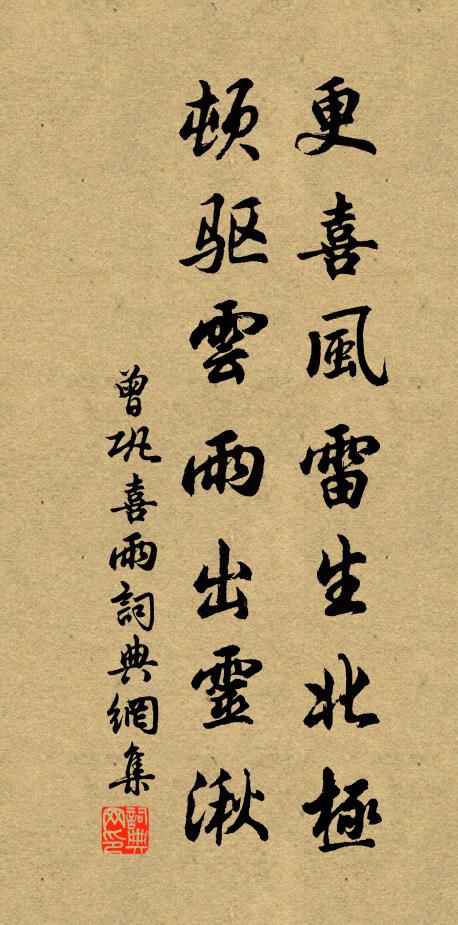 更喜風雷生北極
頓驱雲雨出靈湫
曾巩喜雨詞典網集
詞典网印